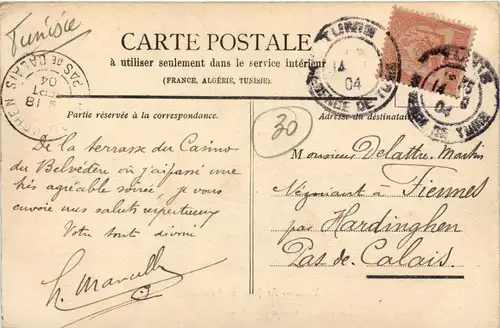 Tunisie
CARTE POSTALE
à utiliser seulement dans le service intérieur
(FRANCE, ALGÉRIE, TUNISIE).
TUNIS
14
04
RÉGENCE DE TUNIS
TUNIS
14
04
DE TUNIS
PAS DE CALAIS
18
SEPT
04
Partie réservée à la correspondance.
Adresse du destinataire
30
De la terrasse du Casino
du Belvédère où j'ai passé une
très agréable soirée, je vous
envoie mes saluts respectueux
Votre tout dévoué
Monsieur Delattre-Martin
Négociant à Fiennes
par Hardinghen
Pas de-Calais.